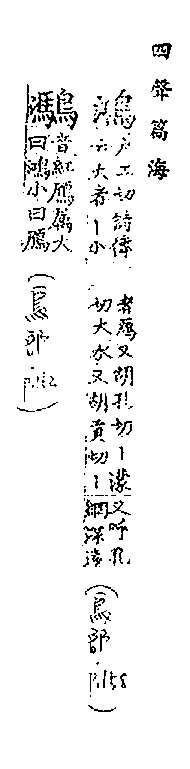 四聲篇海
戶工切詩傳
云大者丨小
者鴈又胡孔切丨濛又呼孔
切大水又胡貢切丨絧深遠
(鳥部·P.158)
音紅鴈属大
曰鴻小曰鴈
(鳥部·P.12)